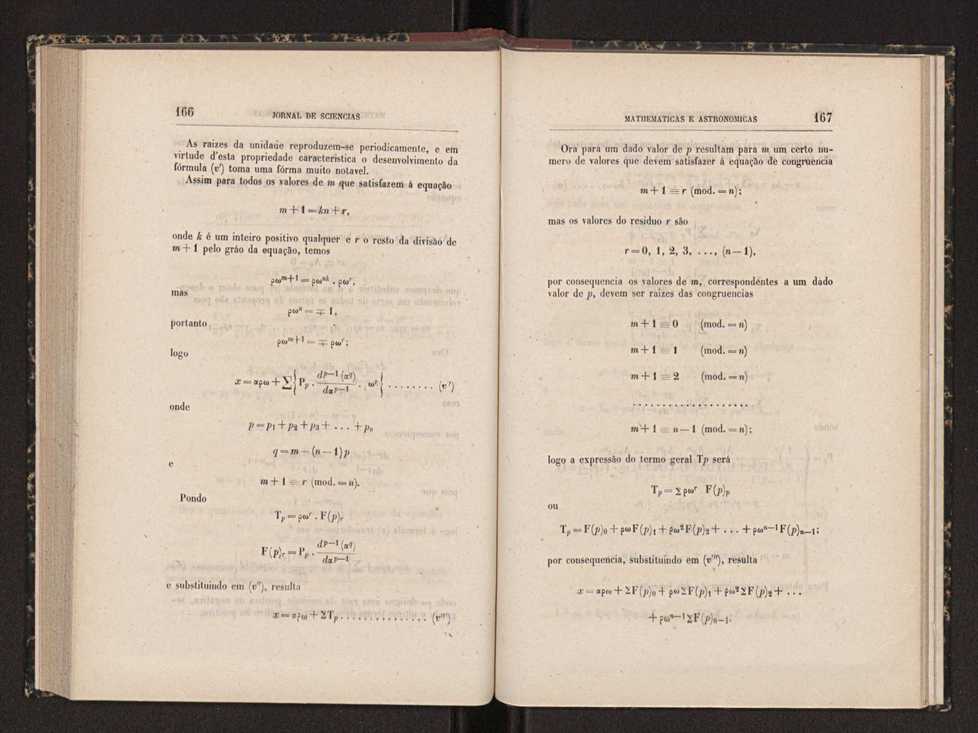 166
JORNAL DE SCIENCIAS
As raizes da unidade reproduzem-se periodicamente, e em
virtude d'esta propriedade caracteristica o desenvolvimento da
fórmula (v') toma uma fórma muito notavel.
Assim para todos os valores de m que satisfazem á equação
m + 1 = kn + r,
onde k é um inteiro positivo qualquer e r o resto da divisão de
m + 1 pelo gráo da equação, temos
ρω^{m+1} = ρω^{nk} . ρω^r,
mas
ρω^n = ∓ 1,
portanto
ρω^{m+1} = ∓ ρω^r;
logo
x = αρω + Σ{ P_p . d^{p−1}(α^q) / dα^{p−1} . ω^r { ........ (v')
onde
p = p_1 + p_2 + p_3 + ... + p_n
q = m − (n − 1) p
e
m + 1 ≡ r (mod. = n).
Pondo
T_p = ρω^r . F(p)_r
F(p)_r = P_p . d^{p−1}(α^q) / dα^{p−1}
e substituindo em (v''), resulta
x = αρω + ΣT_p ............... (v''')
MATHEMATICAS E ASTRONOMICAS
167
Ora para um dado valor de p resultam para m um certo nu-
mero de valores que devem satisfazer á equação de congruencia
m + 1 ≡ r (mod. = n);
mas os valores do residuo r são
r = 0, 1, 2, 3, ..., (n − 1),
por consequencia os valores de m, correspondentes a um dado
valor de p, devem ser raizes das congruencias
m + 1 ≡ 0 (mod. = n)
m + 1 ≡ 1 (mod. = n)
m + 1 ≡ 2 (mod. = n)
....................
m + 1 ≡ n − 1 (mod. = n);
logo a expressão do termo geral Tp será
T_p = Σ ρω^r F(p)_p
ou
T_p = F(p)_0 + ρωF(p)_1 + ρω^2F(p)_2 + ... + ρω^{n−1}F(p)_{n−1};
por consequencia, substituindo em (v'''), resulta
x = αρω + ΣF(p)_0 + ρωΣF(p)_1 + ρω^2ΣF(p)_2 + ...
+ ρω^{n−1}ΣF(p)_{n−1}.